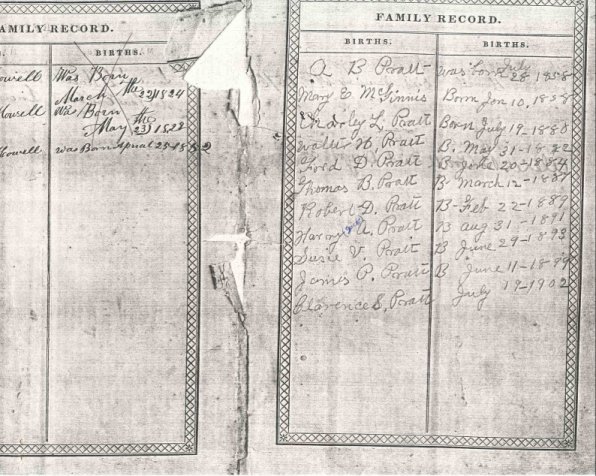 FAMILY RECORD.
BIRTHS.
owell Was Born
March the 22) 1824
Howell Was Born
May the 23) 1828
Howell was Born
FAMILY RECORD.
BIRTHS. BIRTHS.
A B Pratt was born July 28 1858
Mary E McGinnis Born Jan 10, 1858
Charley L. Pratt Born July 19-1880
Walter H. Pratt B. May 31-1882
Ford D. Pratt B June 20-1884
Thomas B. Pratt B March 12-1887
Robert D. Pratt B-Feb 22-1889
A. Pratt B Aug 31-1891
Susie V. Pratt B June 29-1893
James P. Pratt B June 11-1899
Clarence S. Pratt July 19-1902